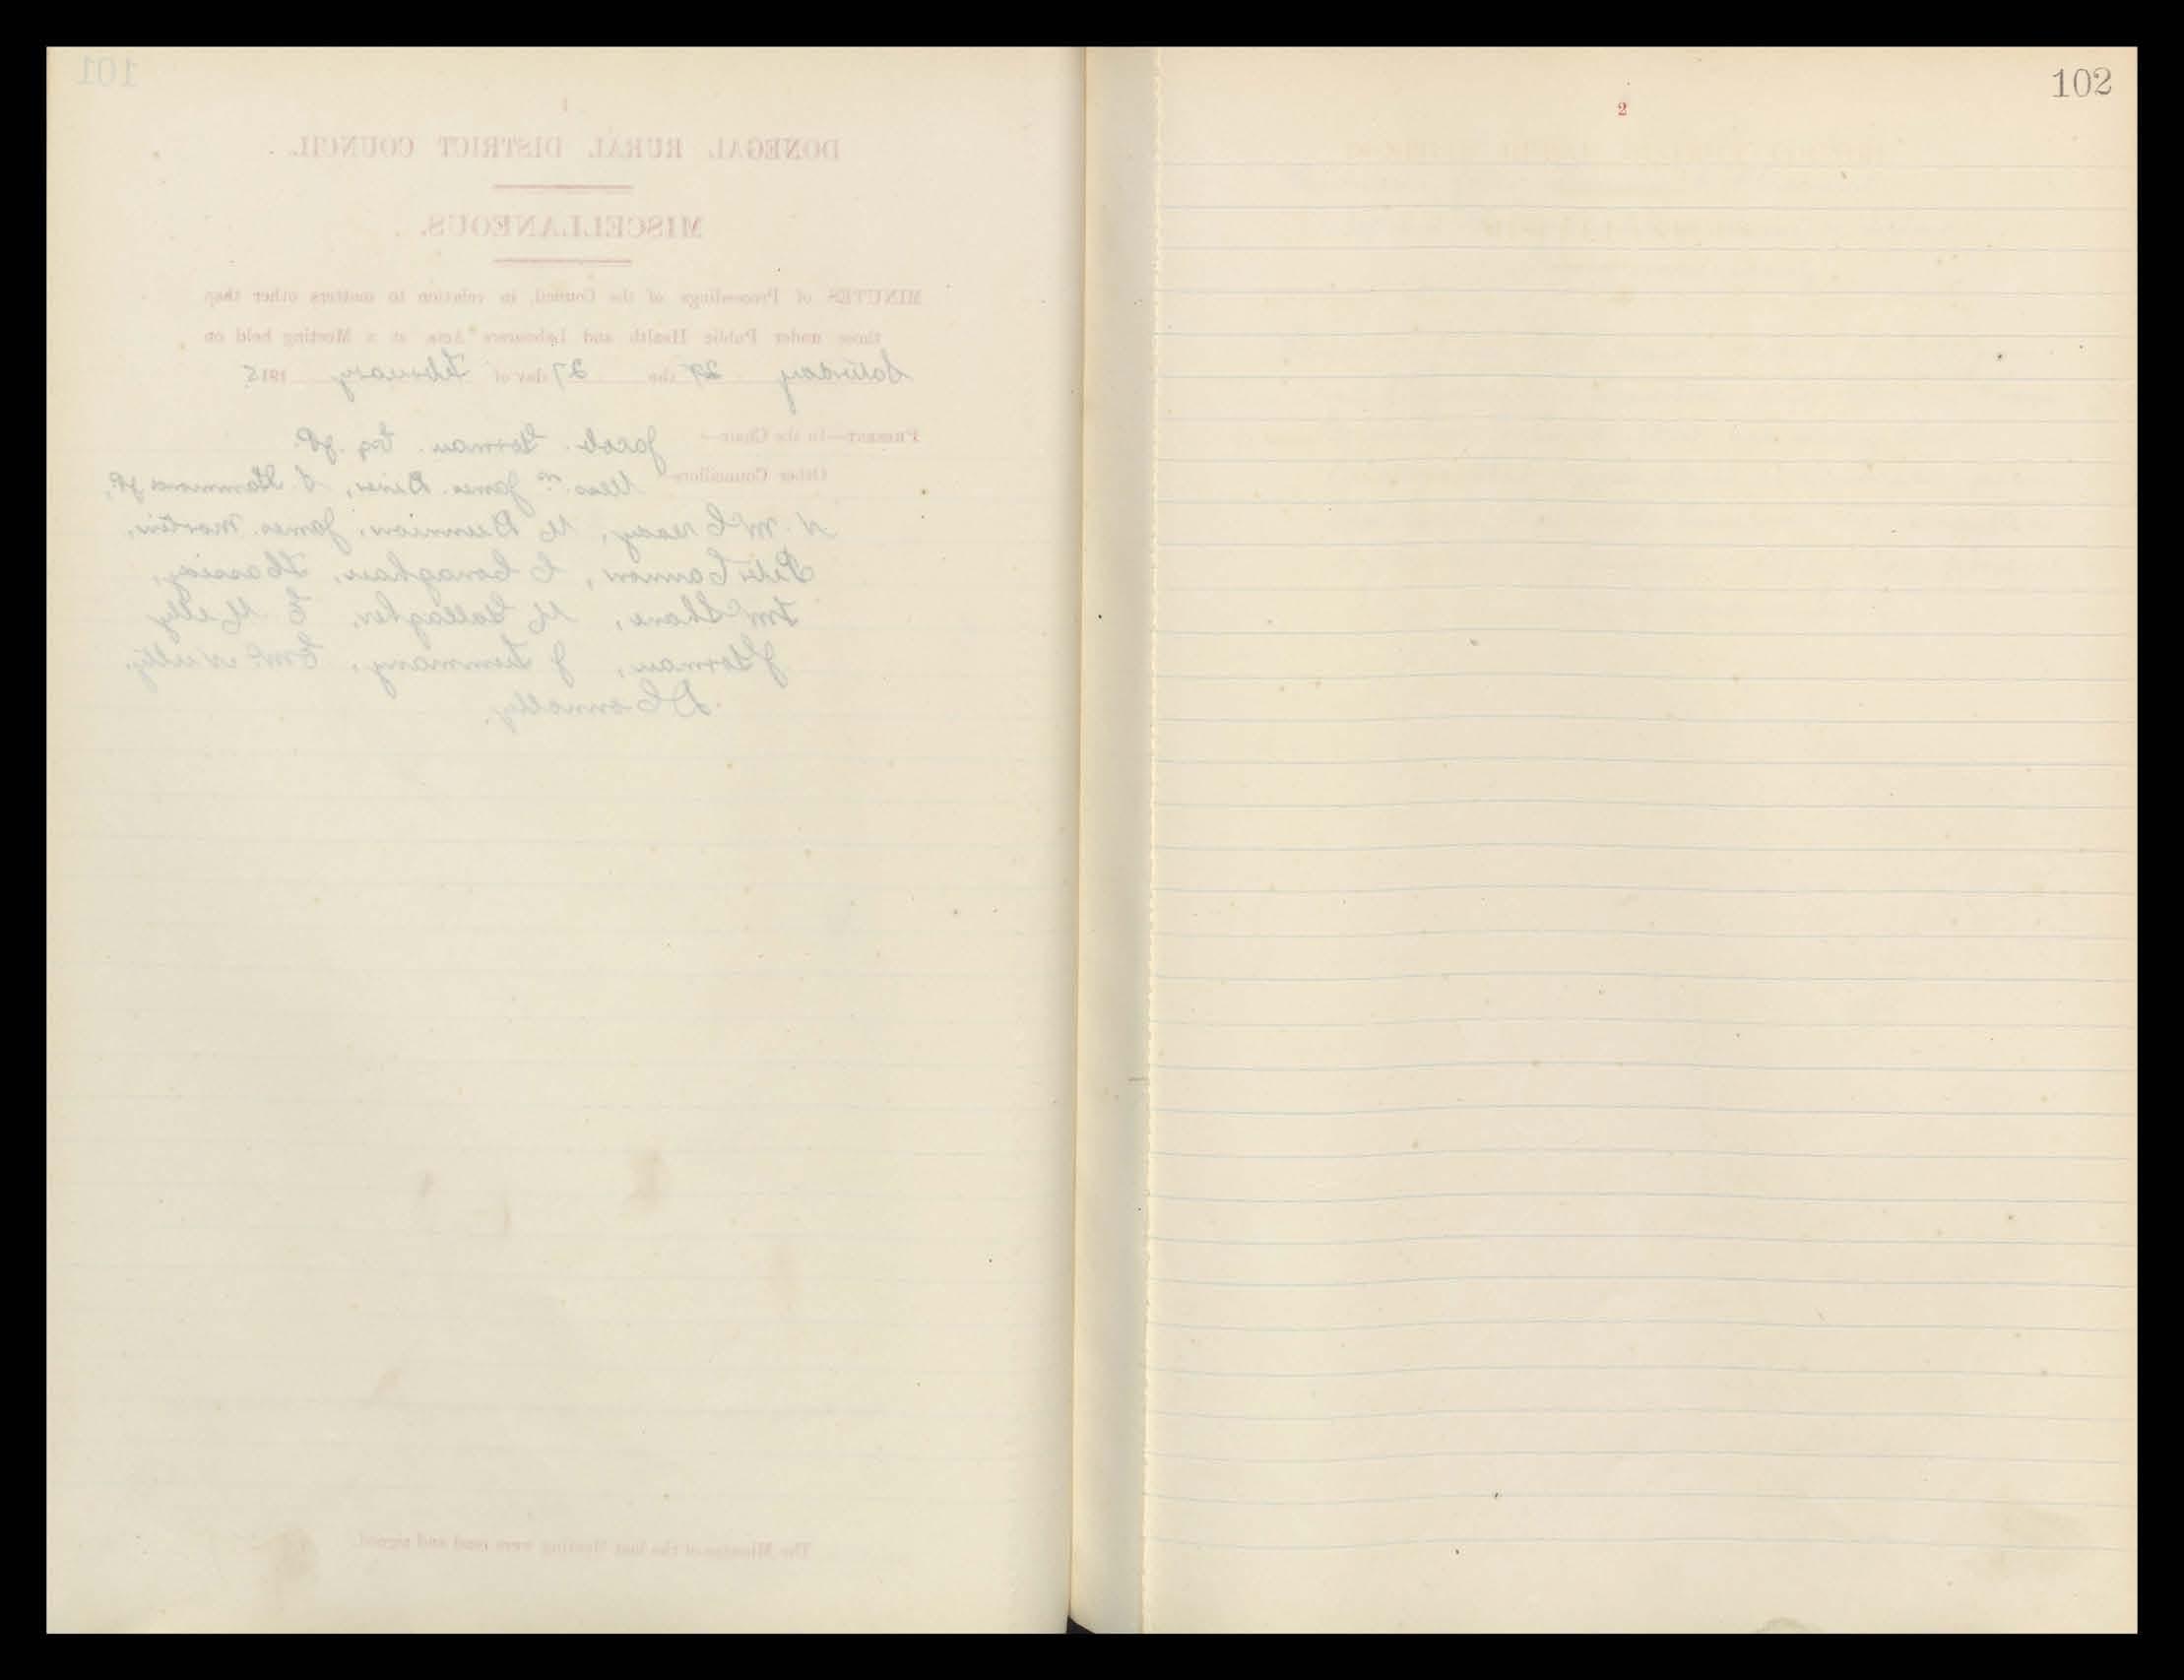 101
1
DONEGAL RURAL DISTRICT COUNCIL.
MISCELLANEOUS.
MINUTES of Proceedings of the Council, in relation to matters other than
those under Public Health and Labourers' Acts, at a Meeting held on
Saturday the 27 day of February 1915
PRESENT—In the Chair— Jacob Gorman. Esq. JP.
Other Councillors— James. Diver, Hammond JP,
N. McCready, M Dunnion, James. Martin,
Peter Cannon, C Conaghan, Cassidy,
McShane, M Gallagher, E. Melly
J Gorman, J Timmony, E McNulty,
D Connolly.
The Minutes of the last Meeting were read and signed.
102
2